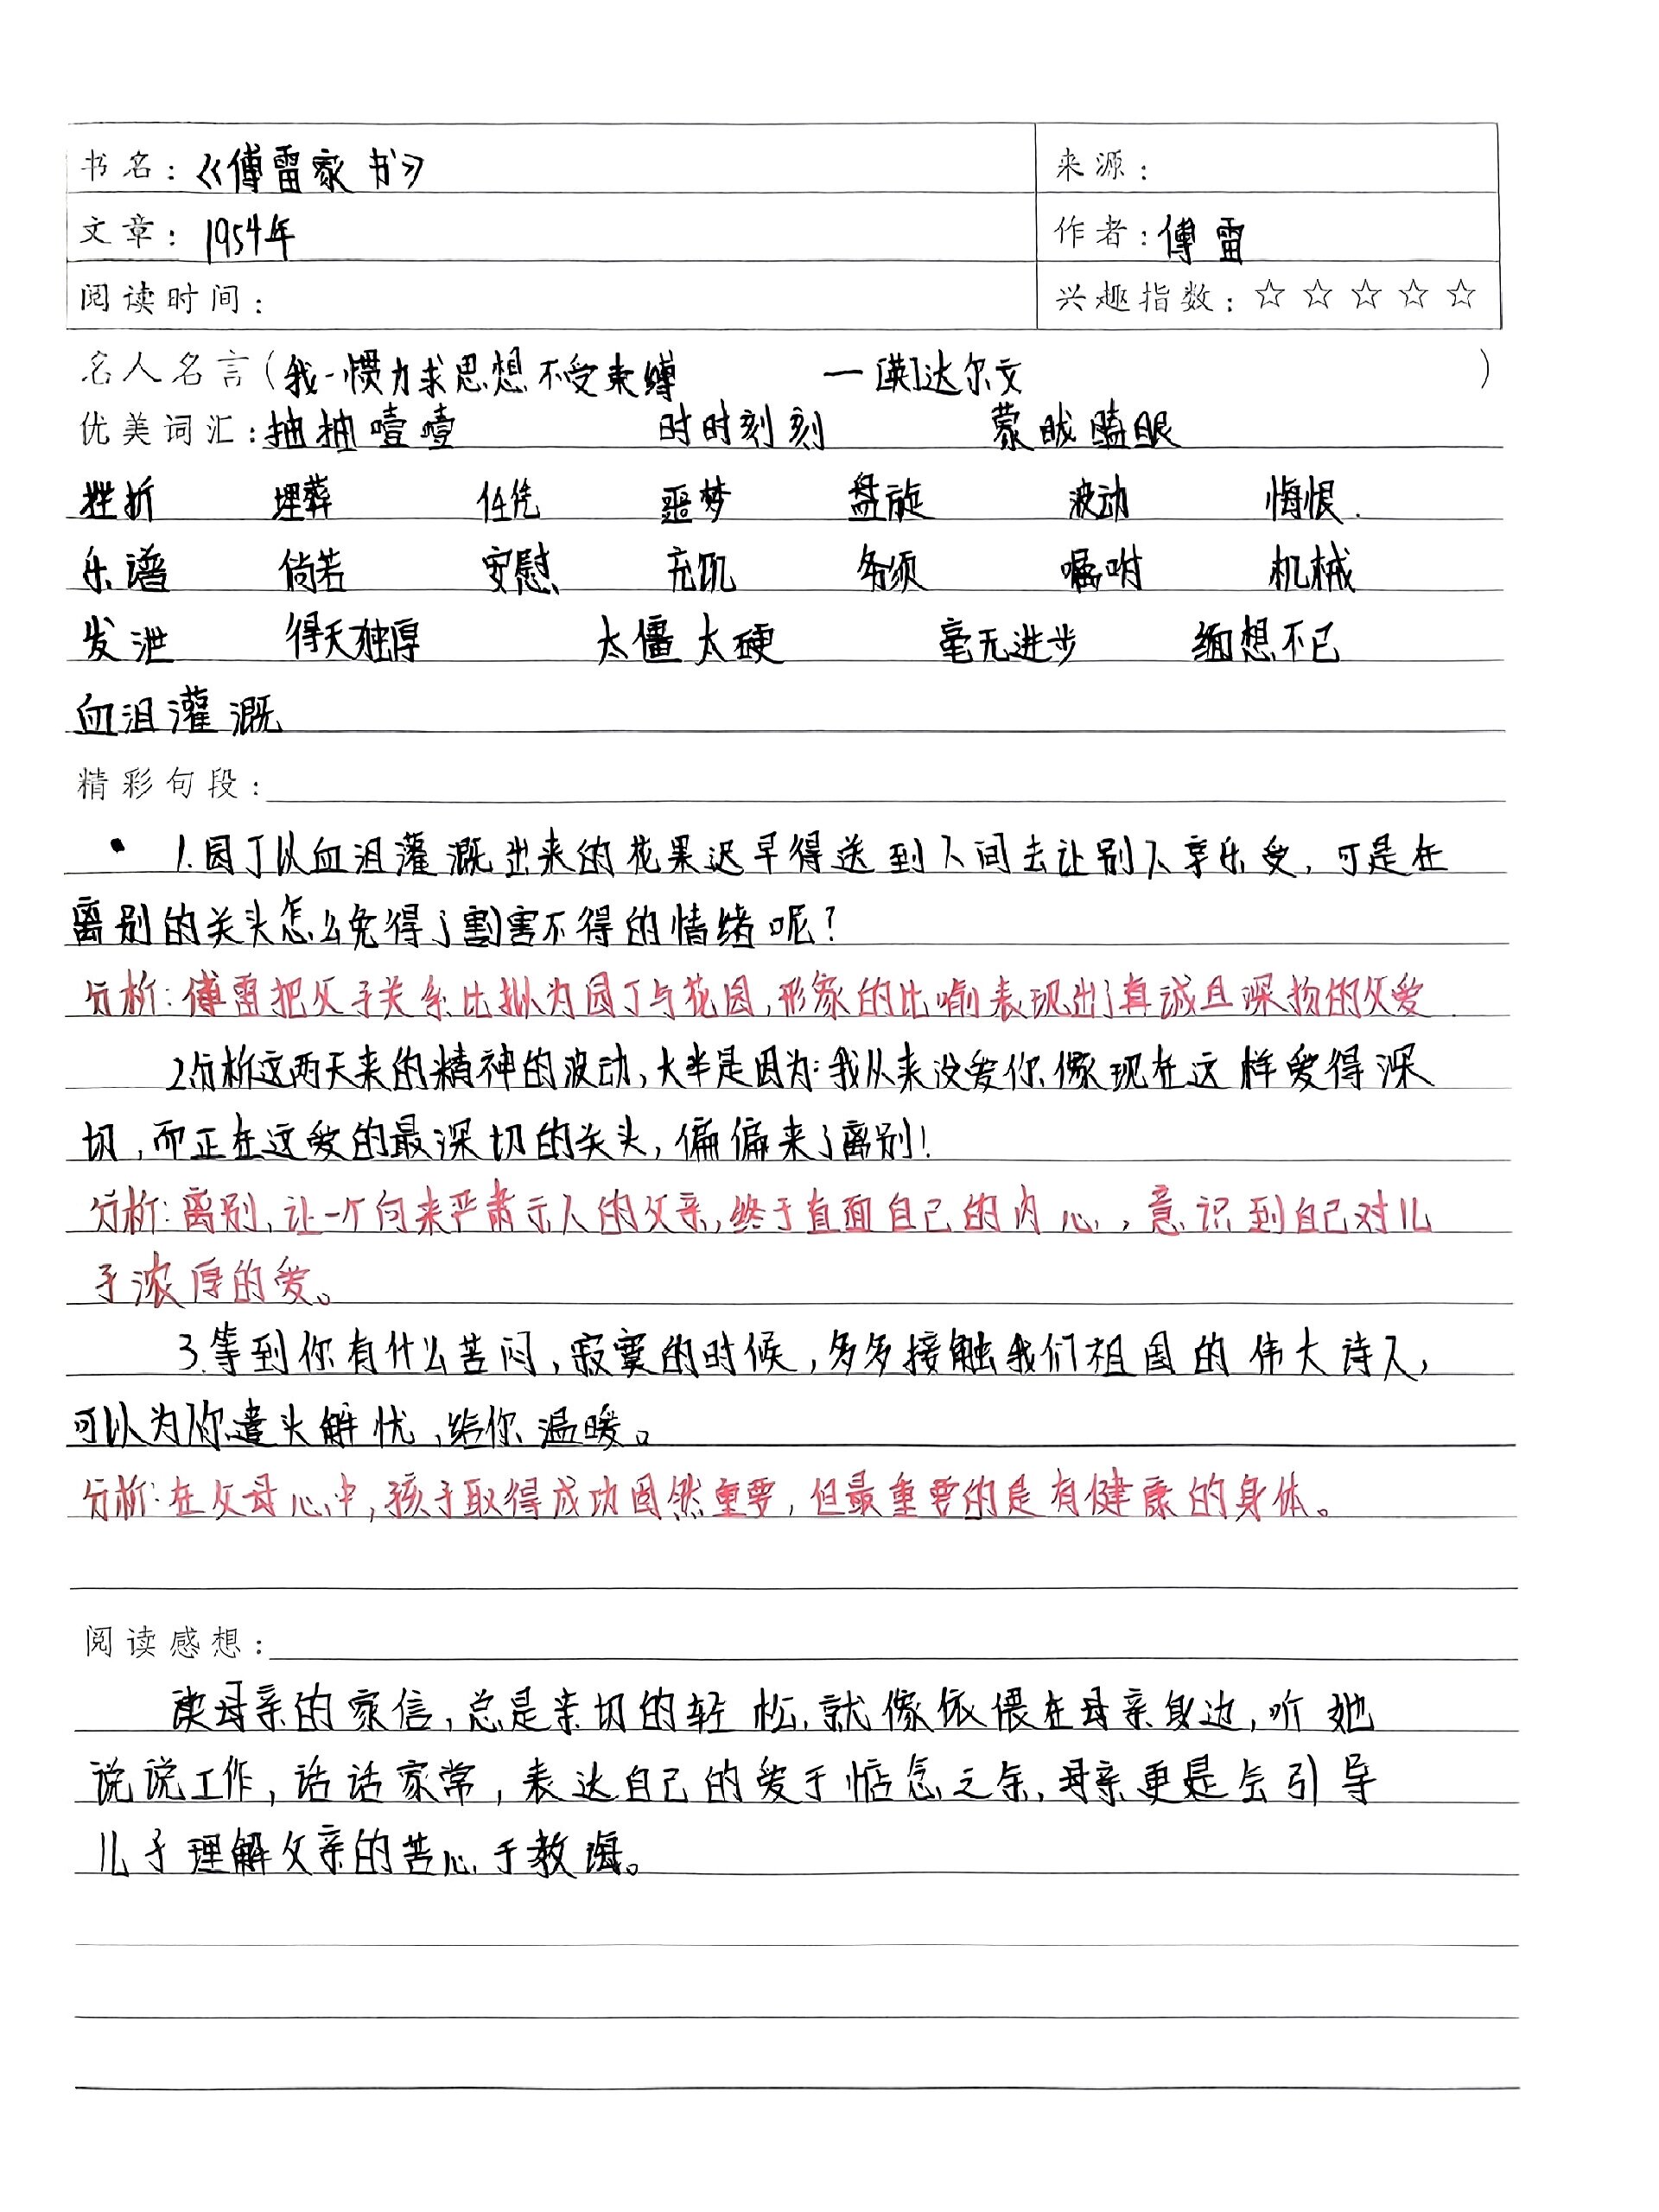 书名：《傅雷家书》
来源：
文章：1954年
作者：傅雷
阅读时间：
兴趣指数：☆☆☆☆☆
名人名言（我一惯力求思想不受束缚 —[英]达尔文）
优美词汇：抽抽噎噎 时时刻刻 蒙眬瞌眼
挫折 埋葬 任凭 噩梦 盘旋 波动 悔恨.
乐谱 倘若 安慰 充饥 务须 嘱咐 机械
发泄 得天独厚 太僵太硬 毫无进步 缅想不已
血泪灌溉
精彩句段：
1.园丁以血泪灌溉出来的花果迟早得送到人间去让别人享乐受，可是在
离别的关头怎么免得了割害不得的情绪呢？
分析：傅雷把父子关系比拟为园丁与花园，形象的比喻表现出了真诚且深挚的父爱.
2.分析这两天来的精神的波动，大半是因为：我从来没爱你像现在这样爱得深
切，而正在这爱的最深切的关头，偏偏来了离别！
分析：离别，让一个向来严肃示人的父亲，终于直面自己的内心，意识到自己对儿
子浓厚的爱。
3.等到你有什么苦闷，寂寞的时候，多多接触我们祖国的伟大诗人，
可以为你遣头解忧，给你温暖。
分析：在父母心中，孩子取得成功固然重要，但最重要的是有健康的身体。
阅读感想：
读母亲的家信，总是亲切的轻松，就像依偎在母亲身边，听她
说说工作，话话家常，表达自己的爱于惦念之余，母亲更是会引导
儿子理解父亲的苦心于教诲。